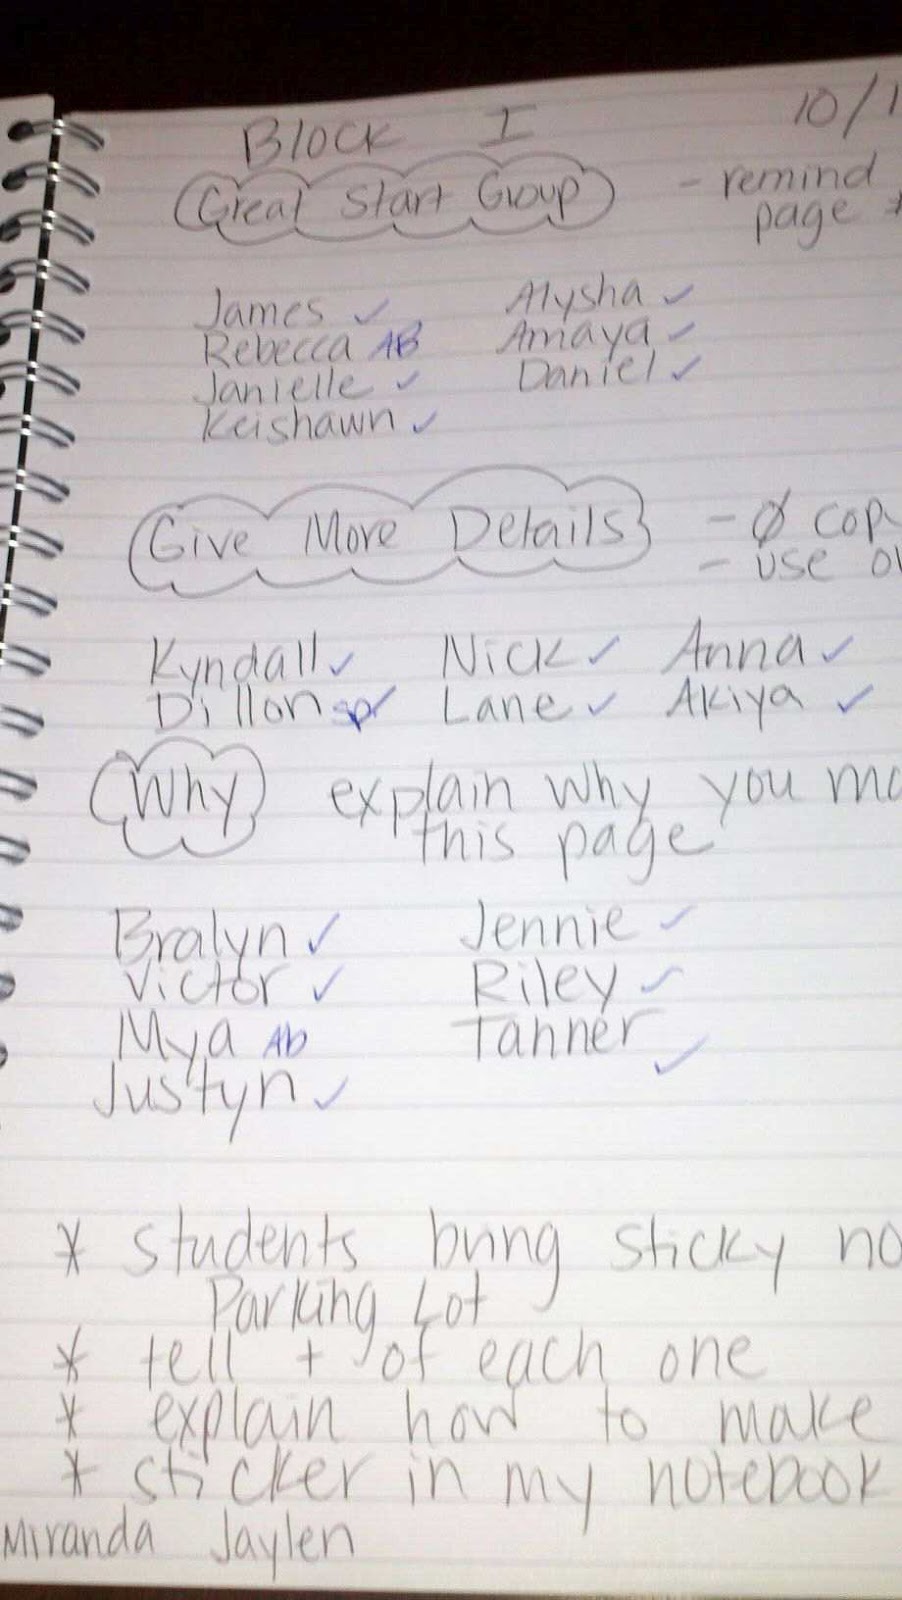 Block I 10/1
Great Start Group - remind
page *
James ✓ Alysha ✓
Rebecca AB Amaya ✓
Janielle ✓ Daniel ✓
Keishawn ✓
Give More Details - Ø cop
- use ow
Kyndall ✓ Nick ✓ Anna ✓
Dillon sp✓ Lane ✓ Akiya ✓
Why explain why you ma
this page
Bralyn ✓ Jennie ✓
Victor ✓ Riley ✓
Mya Ab Tanner ✓
Justyn ✓
* students bring sticky no
Parking Lot
* tell + of each one
* explain how to make
* sticker in my notebook
Miranda Jaylen